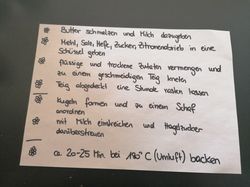 Butter schmelzen und Milch dazugeben
Mehl, Salz, Hefe, Zucker, Zitronenabrieb in eine
Schüssel geben
flüssige und trockene Zutaten vermengen und
zu einem geschmeidigen Teig kneten
Teig abgedeckt eine Stunde rasten lassen
Kugeln formen und zu einem Schaf
anordnen
mit Milch einstreichen und Hagelzucker
darüberstreuen
ca. 20-25 Min. bei 170°C (Umluft) backen